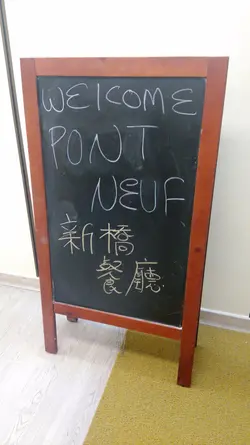 WELCOME
PONT
NEUF
新橋
餐廳